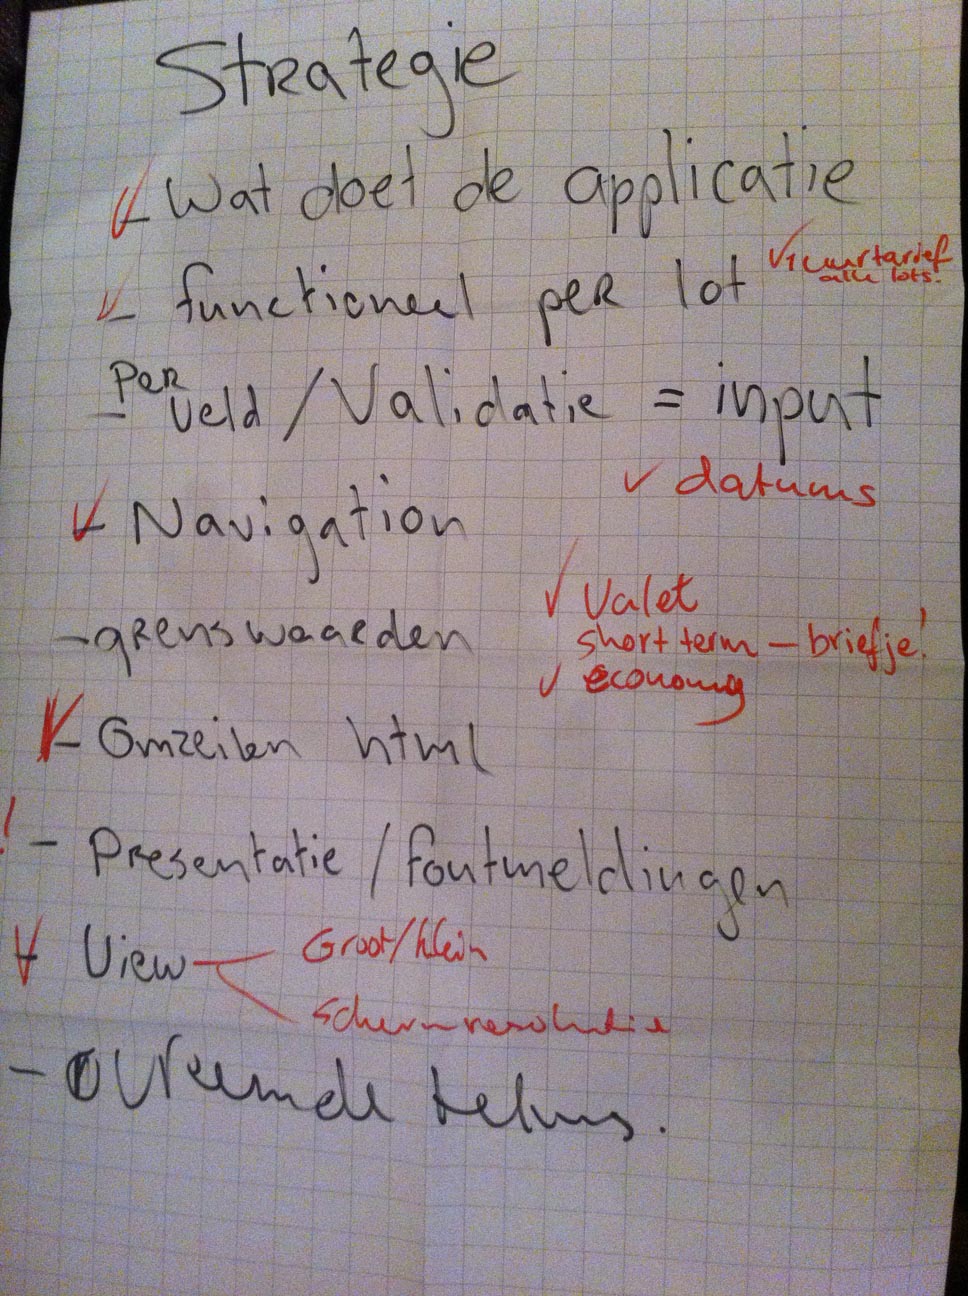 Strategie
- Wat doet de applicatie
- functioneel per lot
✓ 1 uurtarief
alle lots.
- Per veld / Validatie = input
✓ datums
- Navigation
✓ Valet
short term - briefje!
✓ economy
- grenswaarden
- Omzeilen html
! - Presentatie / foutmeldingen
View
Groot/klein
Schermresolutie
- Vreemde tekens.